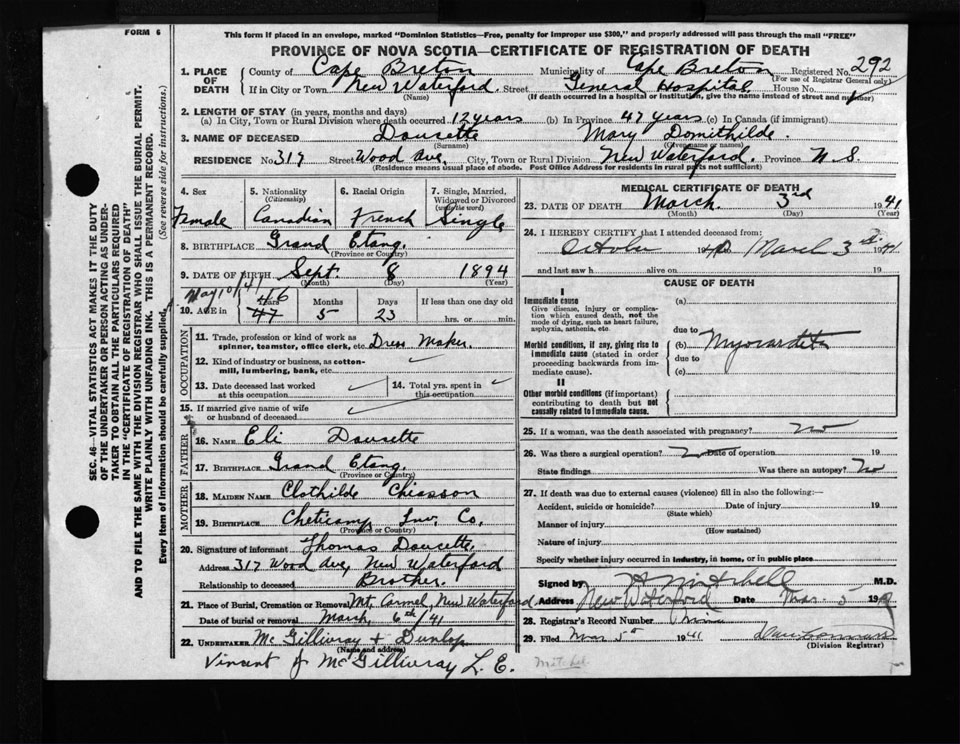 FORM 6
This form if placed in an envelope, marked "Dominion Statistics—Free, penalty for improper use $300," and properly addressed will pass through the mail "FREE"
PROVINCE OF NOVA SCOTIA—CERTIFICATE OF REGISTRATION OF DEATH
1. PLACE OF DEATH { County of Cape Breton Municipality of Cape Breton Registered No. 292
(For use of Registrar General only)
If in City or Town New Waterford. Street General Hospital House No.
(Name) (If death occurred in a hospital or institution, give the name instead of street and number)
2. LENGTH OF STAY (in years, months and days)
(a) In City, Town or Rural Division where death occurred 12 years (b) In Province 47 years (c) In Canada (if immigrant)
3. NAME OF DECEASED Doucette Mary Domithilde.
(Surname) (Given name or names)
RESIDENCE No. 317 Street Wood Ave. City, Town or Rural Division New Waterford. Province N.S.
(Residence means usual place of abode. Post Office Address for residents in rural parts not sufficient)
4. Sex 5. Nationality (Citizenship) 6. Racial Origin 7. Single, Married, Widowed or Divorced (write the word)
Female Canadian French Single
8. BIRTHPLACE Grand Etang.
(Province or Country)
9. DATE OF BIRTH Sept. 8 1894
(Month) (Day) (Year)
May 10/41
10. AGE in Years Months Days If less than one day old
47 46 5 23 hrs. or min.
OCCUPATION
11. Trade, profession or kind of work as spinner, teamster, office clerk, etc. Dress Maker.
12. Kind of industry or business, as cotton-mill, lumbering, bank, etc.
13. Date deceased last worked at this occupation
14. Total yrs. spent in this occupation
15. If married give name of wife or husband of deceased
FATHER
16. NAME Eli Doucette
17. BIRTHPLACE Grand Etang.
(Province or Country)
MOTHER
18. MAIDEN NAME Clothilde Chiasson
19. BIRTHPLACE Cheticamp Inv. Co.
(Province or Country)
20. Signature of informant Thomas Doucette
Address 317 Wood Ave, New Waterford
Relationship to deceased Brother.
21. Place of Burial, Cremation or Removal Mt. Carmel, New Waterford
Date of burial or removal March, 6th/41
22. UNDERTAKER McGillivray & Dunlop
(Name and address)
Vincent J McGillivray L.E.
MEDICAL CERTIFICATE OF DEATH
23. DATE OF DEATH March. 3rd 1941
(Month) (Day) (Year)
24. I HEREBY CERTIFY that I attended deceased from:
October 1940 March 3rd 1941
and last saw h alive on 19
CAUSE OF DEATH
I
Immediate cause
Give disease, injury or complication which caused death, not the mode of dying, such as heart failure, asphyxia, asthenia, etc.
(a)
due to
Morbid conditions, if any, giving rise to immediate cause (stated in order proceeding backwards from immediate cause).
(b) Myocarditis
due to
(c)
II
Other morbid conditions (if important) contributing to death but not causally related to immediate cause.
25. If a woman, was the death associated with pregnancy? No
26. Was there a surgical operation? No Date of operation 19
State findings Was there an autopsy? No
27. If death was due to external causes (violence) fill in also the following:—
Accident, suicide or homicide? Date of injury 19
(State which)
Manner of injury
(How sustained)
Nature of injury
Specify whether injury occurred in industry, in home, or in public place
Signed by M.D.
Address New Waterford Date Mar. 5 19
28. Registrar's Record Number
29. Filed Mar 5th 1941
(Division Registrar)
SEC. 46—VITAL STATISTICS ACT MAKES IT THE DUTY
OF THE UNDERTAKER OR PERSON ACTING AS UNDER-
TAKER TO OBTAIN ALL THE PARTICULARS REQUIRED
IN THE "CERTIFICATE OF REGISTRATION OF DEATH"
AND TO FILE THE SAME WITH THE DIVISION REGISTRAR WHO SHALL ISSUE THE BURIAL PERMIT.
WRITE PLAINLY WITH UNFADING INK. THIS IS A PERMANENT RECORD.
Every item of information should be carefully supplied. (See reverse side for instructions.)